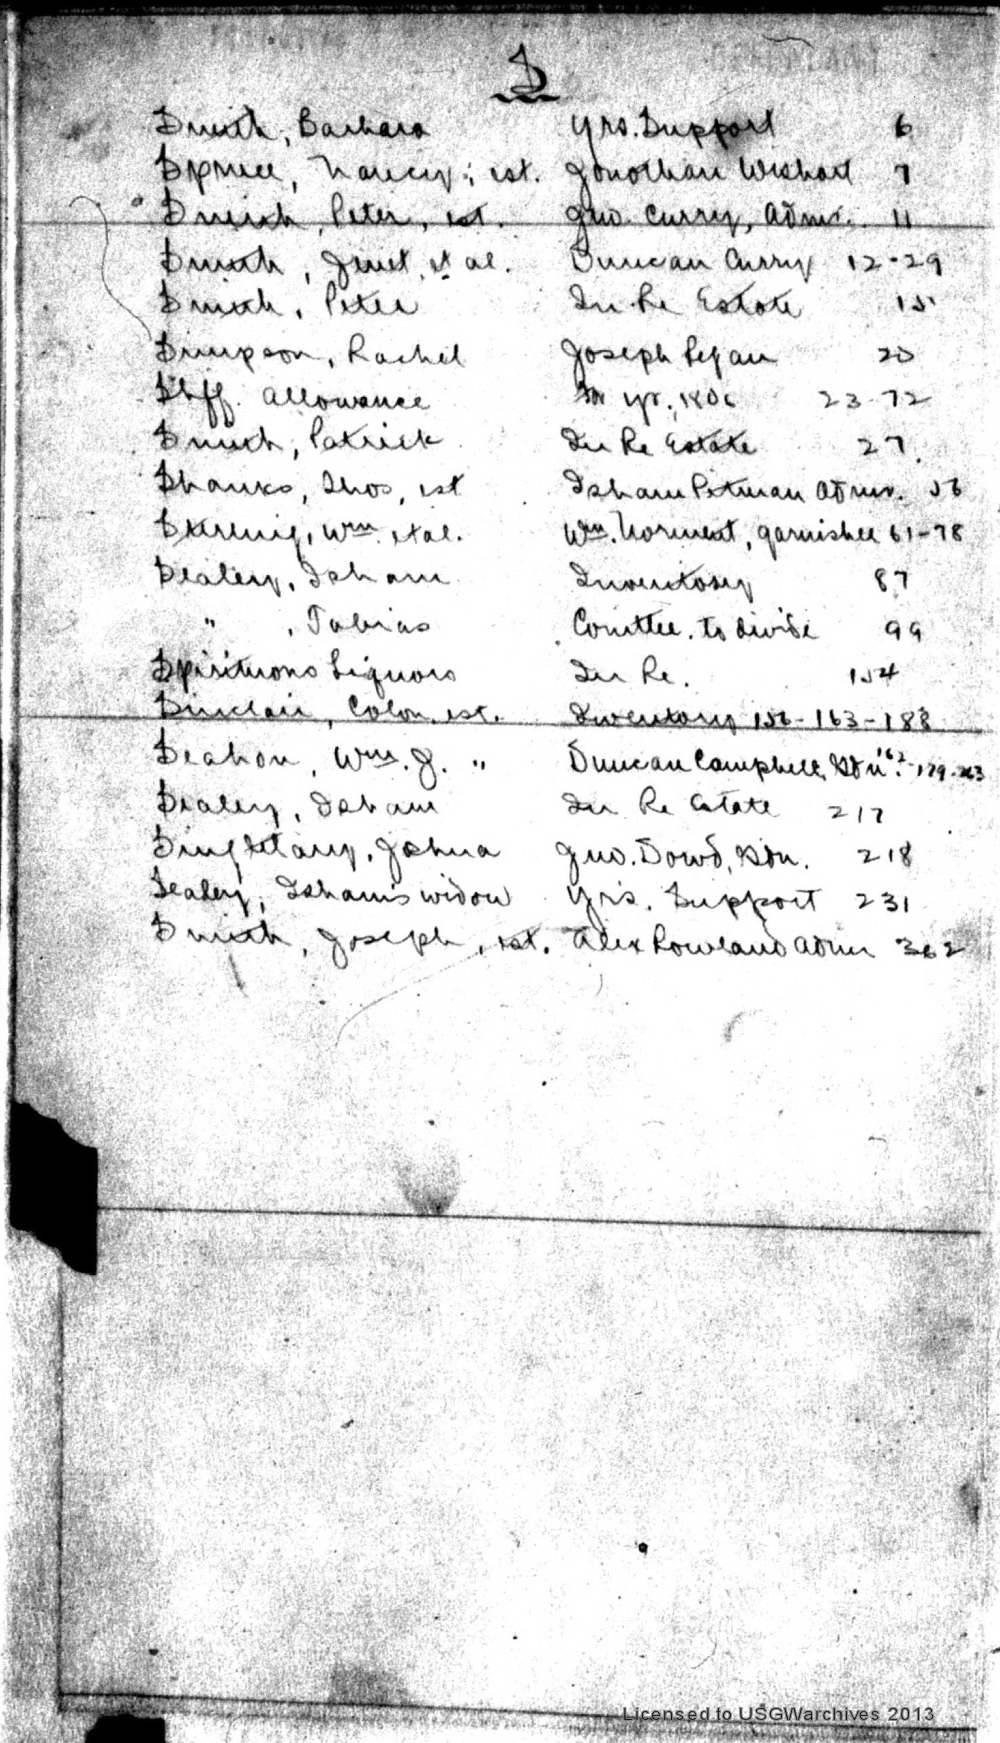 S
Smith, Barbara yrs. Support 6
Spruce, Nancy; est. Jonothan Wishart 7
Smith, Peter, est. Jno. Curry, Admr. 11
Smith, Jenet, et al. Duncan Curry 12-29
Smith, Peter In Re Estate 15
Simpson, Rachel Joseph Regan 20
Shff. Allowance yr., 1806 23-72
Smith, Patrick In Re Estate 27
Shanks, Thos, est Isham Pitman Admr. 56
Sterling, Wm. et al. Wm. Norment, garnishee 61-78
Sealey, Isham Inventory 87
" , Tobias Comttee. to divide 99
Spirituous Liquors In Re. 154
Sinclair, Colon. est. Inventory 156-163-188
Seahon, Wm. J. " Duncan Campbell, Gdn. 162-179-
Sealey, Isham In Re Estate 217
Singletary, Joshua Jno. Dowd, Gdn. 218
Sealey, Isham's widow Yr's. Support 231
Smith, Joseph, est. Alex Rowland Admr 362
Licensed to USGWarchives 2013